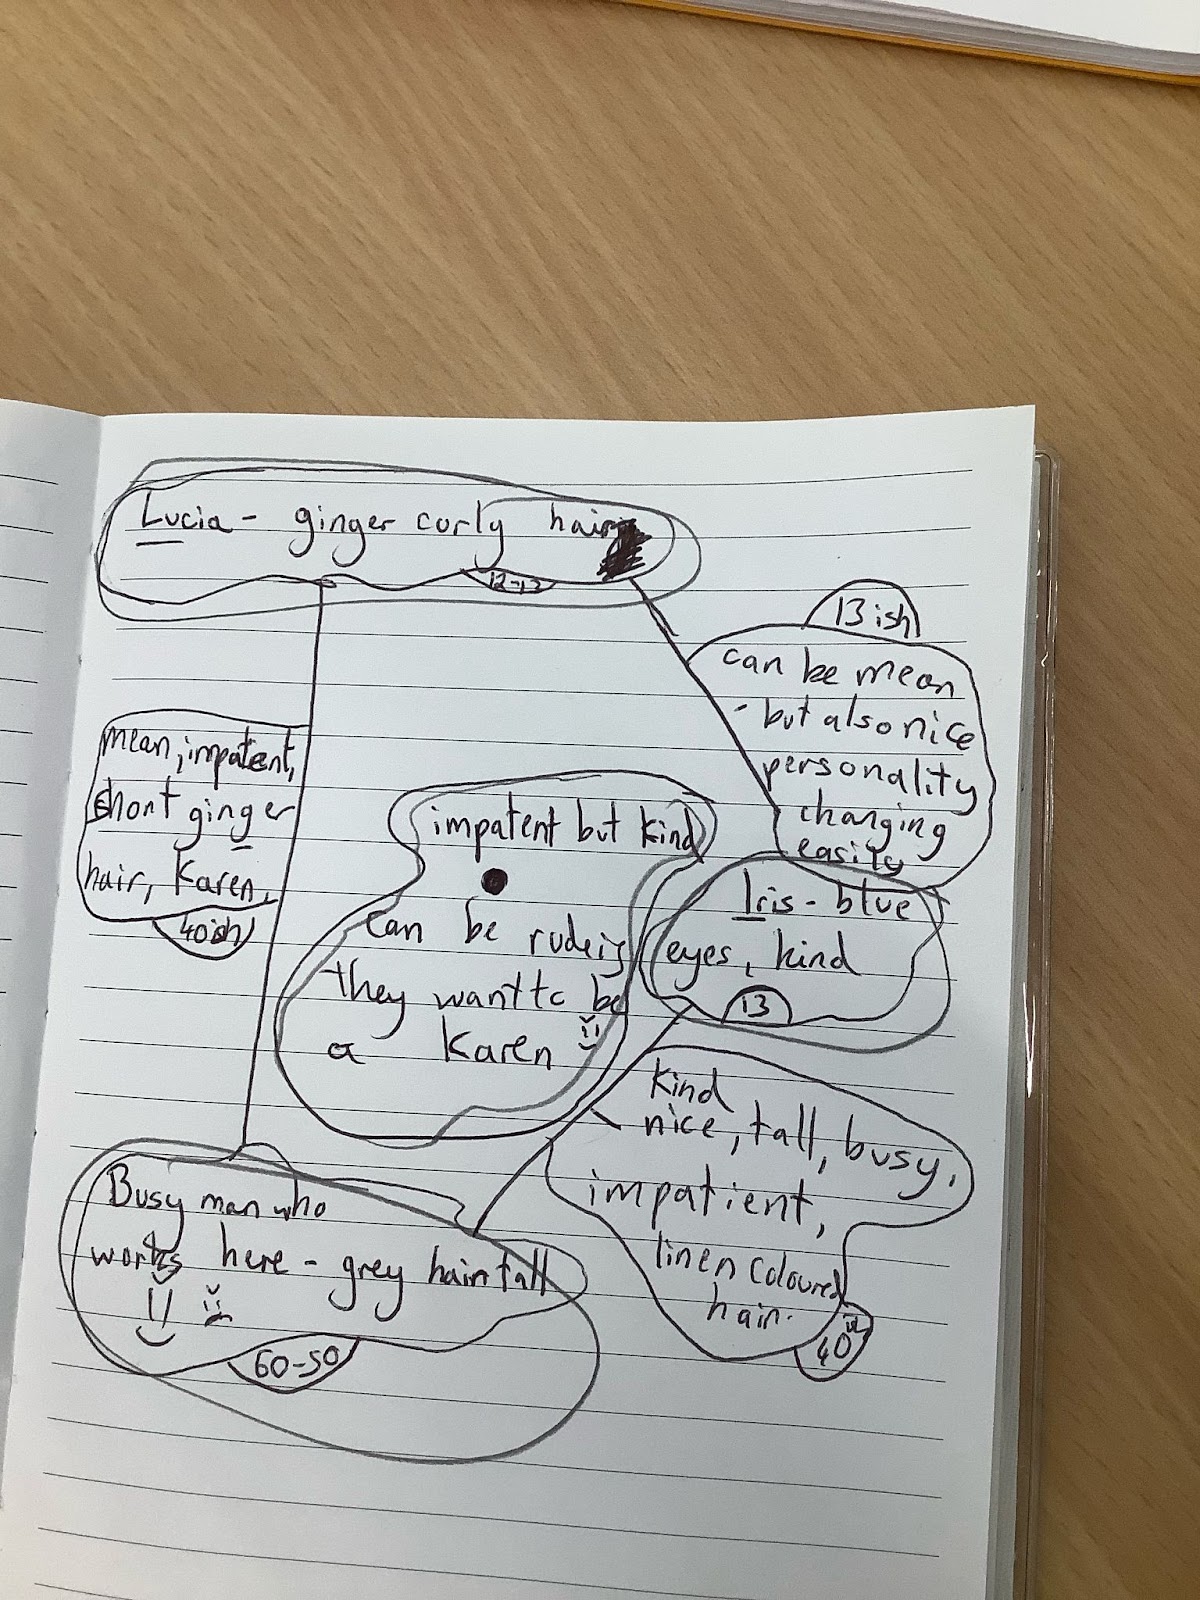 Lucia - ginger curly hair
12-13
13 ish
can be mean
- but also nice
personality
changing
easily
mean, impatent,
short ginger
hair, Karen,
40ish
impatent but kind
can be rude if
they want to be
a Karen
Iris - blue
eyes, kind
13
Kind
nice, tall, busy,
impatient,
linen coloured
hair.
40 ish
Busy man who
works here - grey hair tall
60-50